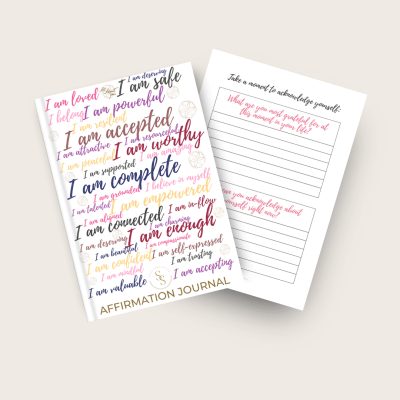 I am deserving
I am safe
I am loved
I belong
I am powerful
I am resilient
I am accepted
I am resourceful
I am attractive
I am worthy
I am peaceful
I am amazing
I am supported
I am complete
I am grounded
I believe in myself
I am talented
I am empowered
I am aligned
I am in-flow
I am connected
I am charming
I am deserving
I am enough
I am beautiful
I am compassionate
I am self-expressed
I am confident
I am trusting
I am mindful
I am accepting
I am valuable
AFFIRMATION JOURNAL
Take a moment to acknowledge yourself:
What are you most grateful for at
this moment in your life?
you acknowledge about
yourself right now?